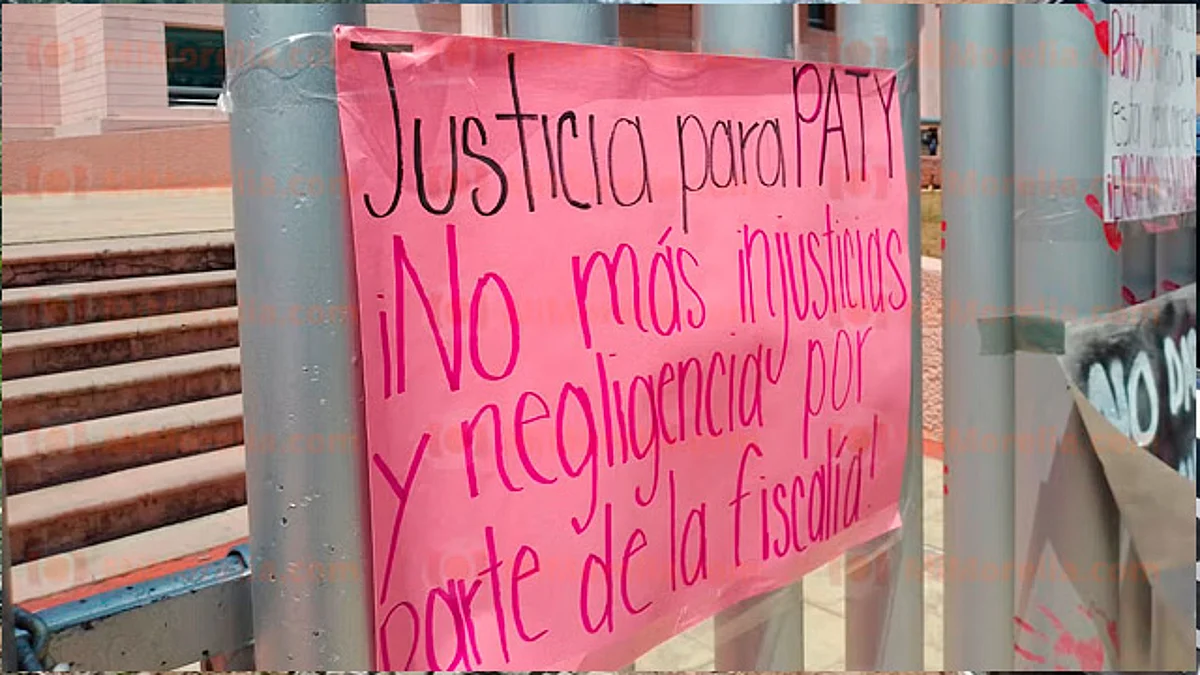 Justicia para PATY
¡No más injusticias
y negligencia por
parte de la fiscalía!
Paty
NO
MiMorelia.com